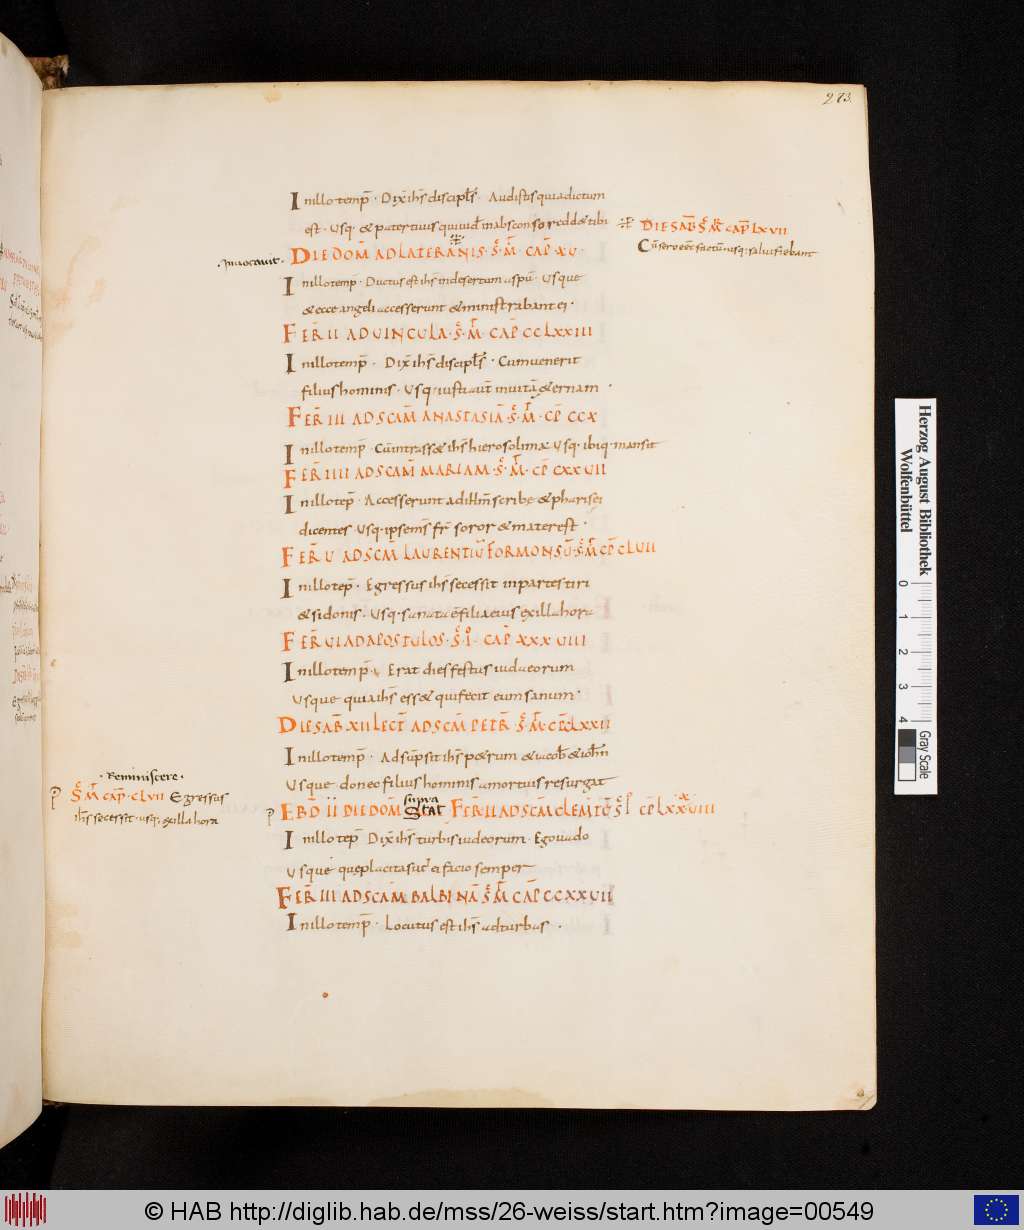 273.
I nillo temp̄ · Dix̄ ih̄s discipl̄s · Audistis quia dictum
est · Usq· & pater tuus qui uid& in absconso redd& tibi
DIE SAB̄ S̄ M̄ CAP̄ LXVII
Cū sero eēt factū · usq· salui fiebant
·Inuocauit·
DIE DOM̄ AD LATERANIS · S̄ M̄ · CAP̄ · XV ·
I nillo temp̄ · Ductus est ih̄s in desertum a spū · Usque
& ecce angeli accesserunt & ministrabant ei ·
FER̄ II AD VINCULA · S̄ · M̄ · CAP̄ CCLXXIII
I nillo temp̄ · Dix̄ ih̄s discipl̄s · Cum uenerit
filius hominis · Usq· iusti aut̄ in uitā &ernam ·
FER̄ III AD SCAM̄ ANASTASIĀ S̄ · M̄ · CP̄ CCX
I nillo temp̄ · Cū intrass& ih̄s hierosolimā Usq· ibiq· mansit
FER̄ IIII AD SCAM̄ MARIAM · S̄ · M̄ · CP̄ CXXVII
I nillo tep̄ · Accesserunt ad ih̄m scribę & pharisei
dicentes · Usq· ipse m̄s fr̄ soror & mater est ·
FER̄ V AD SCM̄ LAURENTIŪ FORMONSŪ · S̄ M̄ CP̄ CLVII
I nillo tep̄ · Egressus ih̄s secessit in partes tiri
& sidonis · Usq· sanata ē filia eius ex illa hora
FER̄ VI AD APOSTULOS · S̄ I · CAP̄ XXXVIIII
I nillo temp̄ · Erat dies festus iudaeorum
Usque quia ih̄s ess& qui fecit eum sanum ·
DIE SAB̄ XII LECT̄ AD SCM̄ PETR̄ · S̄ M̄ · CP̄ CLXXII
I nillo temp̄ · Adsūpsit ih̄s p&rum & iacob̄ & ioh̄n
Usque donec filius hominis a mortuis resurgat
·Reminiscere·
S̄ M̄ CAP̄ · CLVII Egressus
ih̄s secessit · usq· ex illa hora
EBD̄ II DIE DOM̄ supra Stat̄ FER̄ II AD SCAM̄ CLEMTĒ S̄ I CP̄ LXXVIIII
I nillo tep̄ Dix̄ ih̄s turbis iudeorum · Ego uado
Usque quę placita sūt ei facio semper
FER̄ III AD SCAM̄ BALBINĀ S̄ M̄ CAP̄ CCXXVII
I nillo temp̄ · Locutus est ih̄s ad turbas ·
Herzog August Bibliothek
Wolfenbüttel
0 1 2 3 4
Gray Scale
© HAB http://diglib.hab.de/mss/26-weiss/start.htm?image=00549